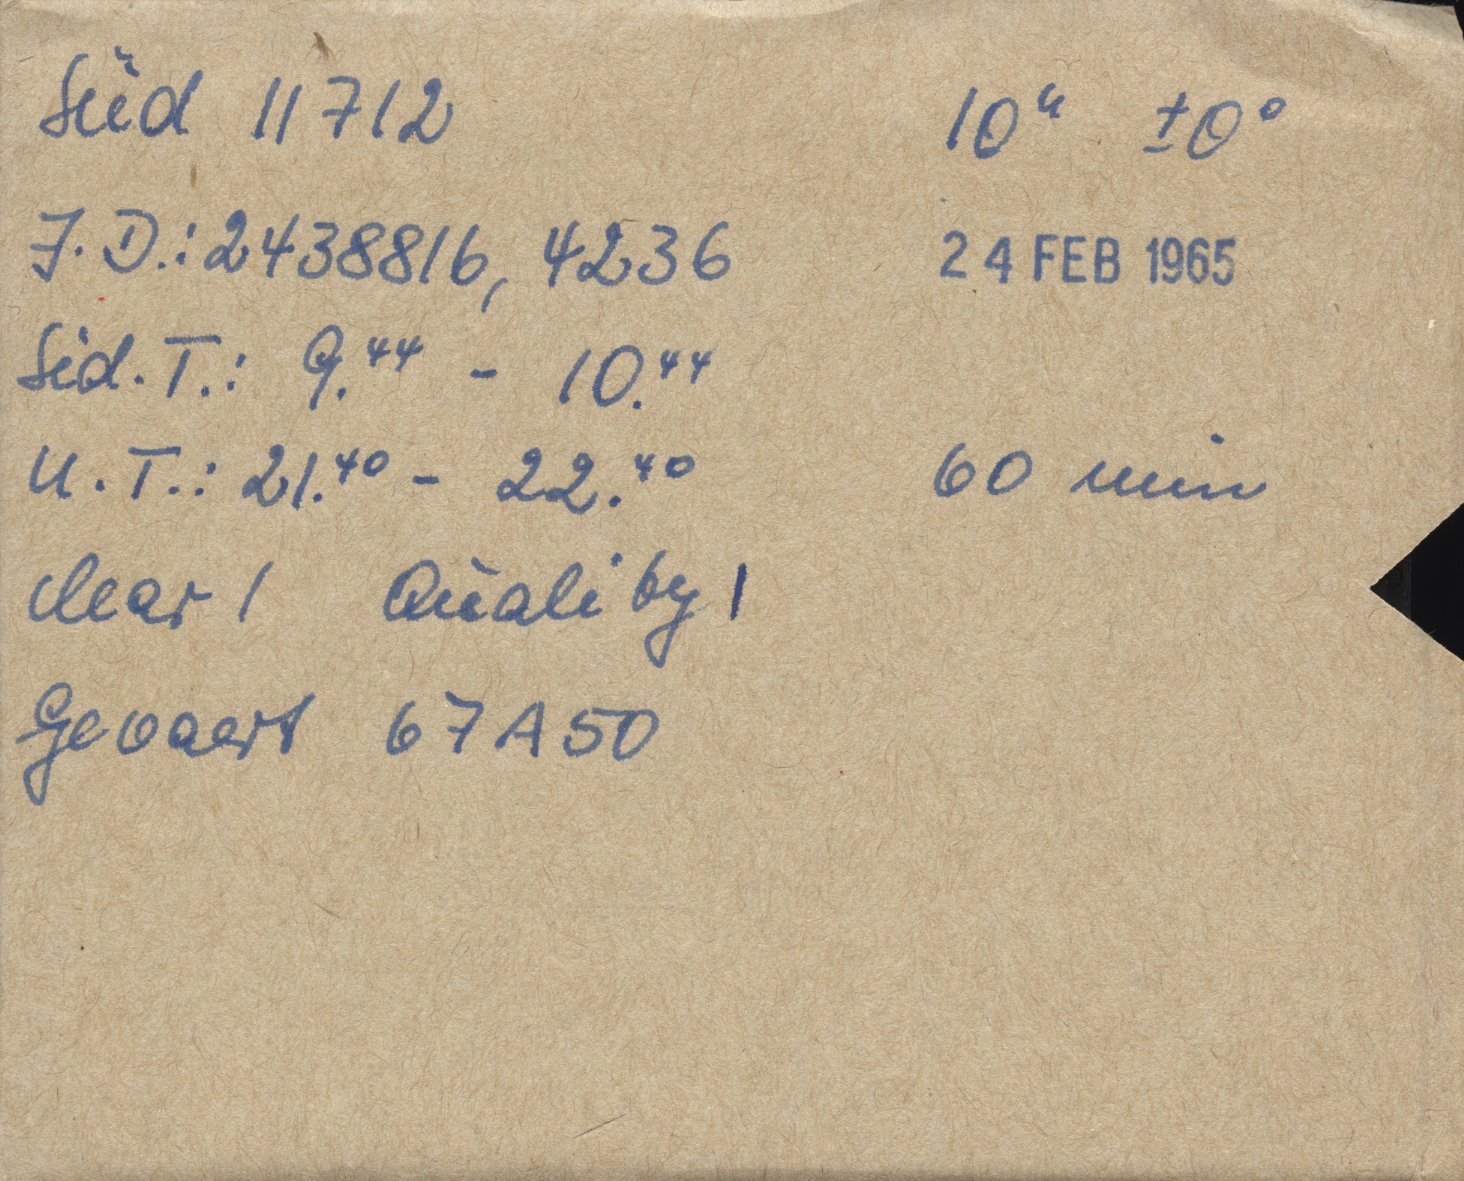 Süd 11712 10ʰ ±0°
J.D.: 2438816,4236 24 FEB 1965
Sid.T.: 9.⁴⁴ - 10.⁴⁴
U.T.: 21.⁴⁰ - 22.⁴⁰ 60 min
clear 1 Quality 1
Gevaert 67A50